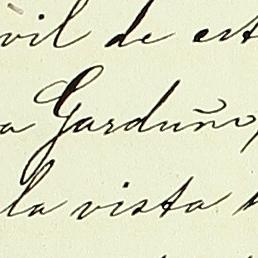 vil de est
a Garduño,
la vista